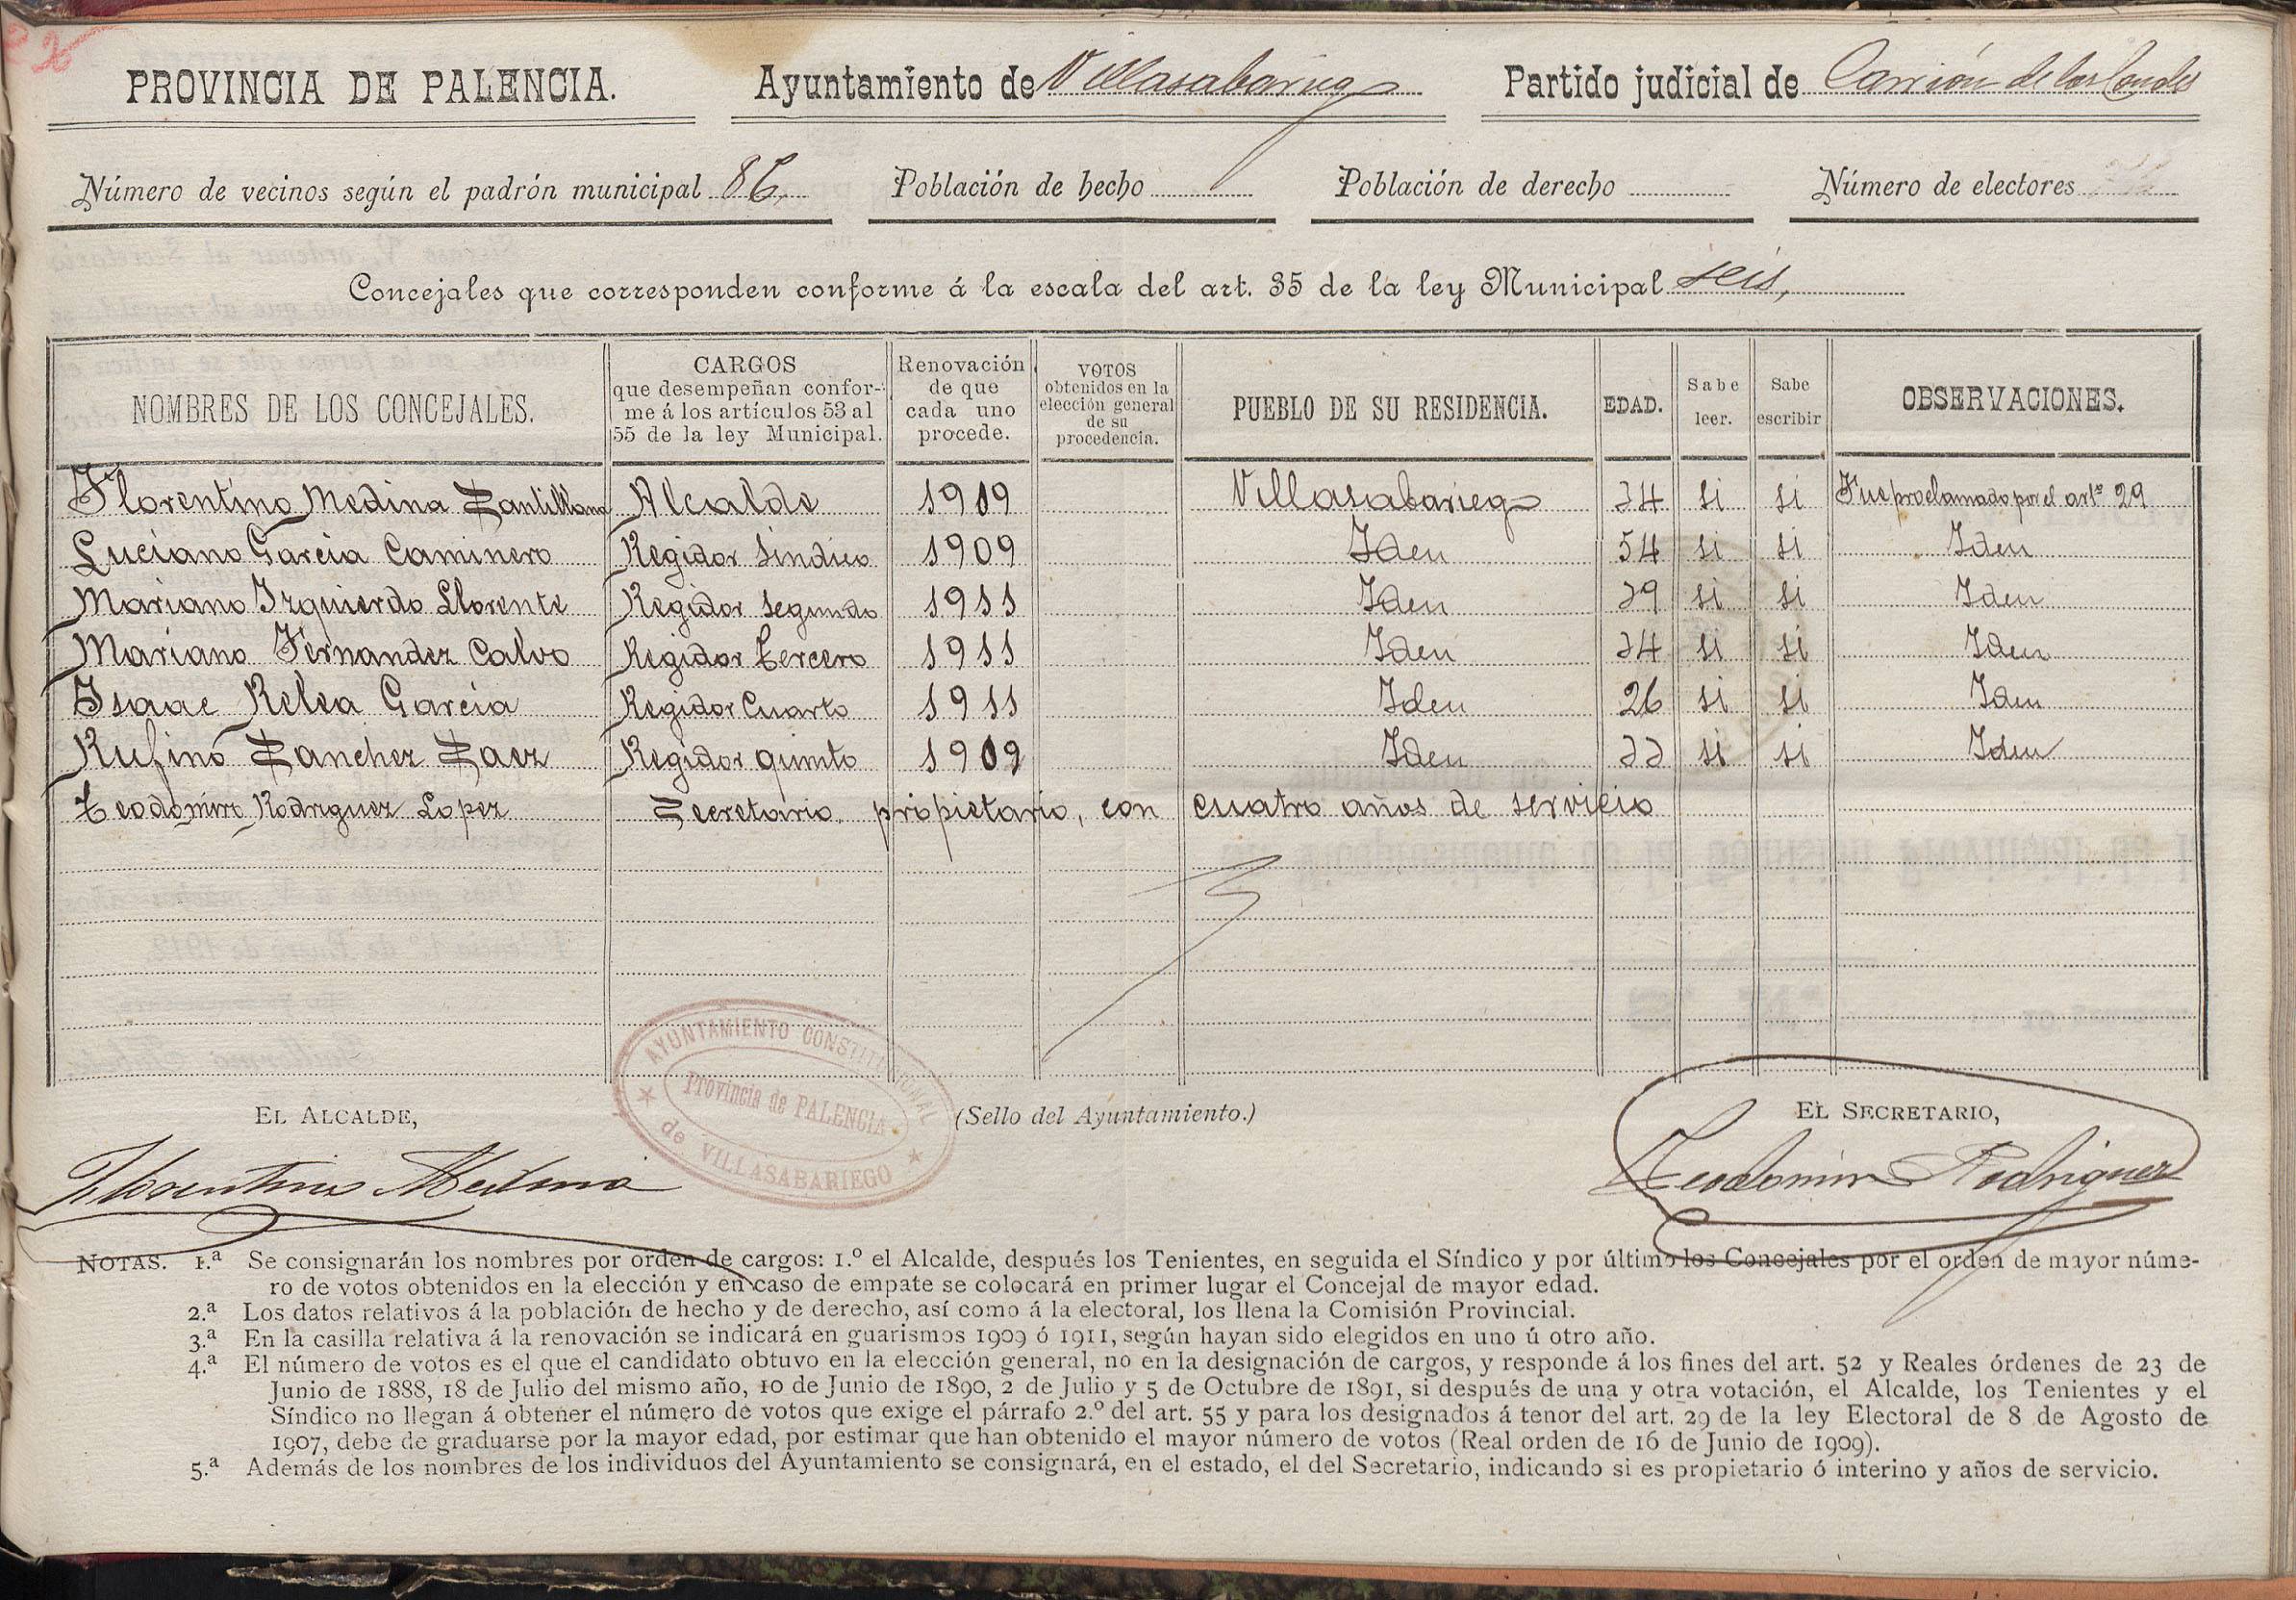 PROVINCIA DE PALENCIA. Ayuntamiento de Villasabariego Partido judicial de Carrión de los Condes
Número de vecinos según el padrón municipal 86, Población de hecho Población de derecho Número de electores
Concejales que corresponden conforme á la escala del art. 35 de la ley Municipal seis,
NOMBRES DE LOS CONCEJALES. CARGOS que desempeñan conforme á los artículos 53 al 55 de la ley Municipal. Renovación de que cada uno procede. VOTOS obtenidos en la elección general de su procedencia. PUEBLO DE SU RESIDENCIA. EDAD. Sabe leer. Sabe escribir OBSERVACIONES.
Florentino Medina Santillana Alcalde 1909 Villasabariego 34 si si Fue proclamado por el artº 29
Luciano Garcia Caminero Regidor Sindico 1909 Iden 54 si si Iden
Mariano Izquierdo Llorente Regidor Segundo 1911 Iden 39 si si Iden
Mariano Fernandez Calvo Regidor Tercero 1911 Iden 34 si si Iden
Isaac Relea Garcia Regidor Cuarto 1911 Iden 26 si si Iden
Rufino Sanchez Saez Regidor quinto 1909 Iden 33 si si Iden
Teodomiro Rodriguez Lopez Secretario propietario, con cuatro años de servicio
EL ALCALDE, (Sello del Ayuntamiento.) EL SECRETARIO,
AYUNTAMIENTO CONSTITUCIONAL
Provincia de PALENCIA
de VILLASABARIEGO
Florentino Medina Teodomiro Rodriguez
NOTAS. 1.ª Se consignarán los nombres por orden de cargos: 1.º el Alcalde, después los Tenientes, en seguida el Síndico y por último los Concejales por el orden de mayor núme-
ro de votos obtenidos en la elección y en caso de empate se colocará en primer lugar el Concejal de mayor edad.
2.ª Los datos relativos á la población de hecho y de derecho, así como á la electoral, los llena la Comisión Provincial.
3.ª En la casilla relativa á la renovación se indicará en guarismos 1909 ó 1911, según hayan sido elegidos en uno ú otro año.
4.ª El número de votos es el que el candidato obtuvo en la elección general, no en la designación de cargos, y responde á los fines del art. 52 y Reales órdenes de 23 de
Junio de 1888, 18 de Julio del mismo año, 10 de Junio de 1890, 2 de Julio y 5 de Octubre de 1891, si después de una y otra votación, el Alcalde, los Tenientes y el
Síndico no llegan á obtener el número de votos que exige el párrafo 2.º del art. 55 y para los designados á tenor del art. 29 de la ley Electoral de 8 de Agosto de
1907, debe de graduarse por la mayor edad, por estimar que han obtenido el mayor número de votos (Real orden de 16 de Junio de 1909).
5.ª Además de los nombres de los individuos del Ayuntamiento se consignará, en el estado, el del Secretario, indicando si es propietario ó interino y años de servicio.